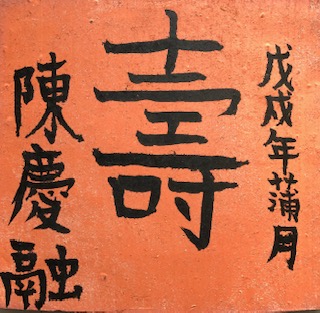 戊戌年蒲月
壽
陳慶融